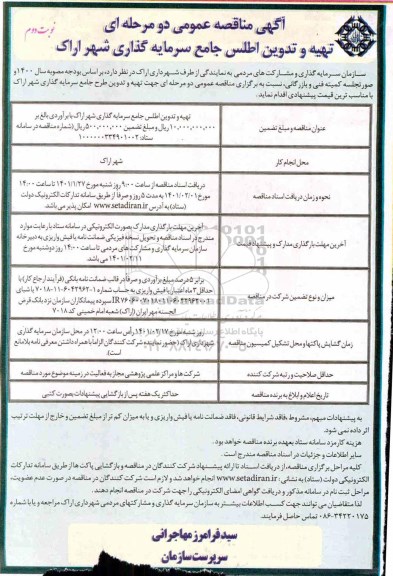 نوبت دوم
آگهی مناقصه عمومی دو مرحله ای
تهیه و تدوین اطلس جامع سرمایه گذاری شهر اراک
سازمان سرمایه گذاری و مشارکت های مردمی به نمایندگی از طرف شهرداری اراک در نظر دارد، بر اساس بودجه مصوبه سال ۱۴۰۰ و
صورتجلسه کمیته فنی و بازرگانی، نسبت به برگزاری مناقصه عمومی دو مرحله ای جهت تهیه و تدوین طرح جامع سرمایه گذاری شهر اراک
با مناسب ترین قیمت پیشنهادی اقدام نماید.
عنوان مناقصه و مبلغ تضمین
تهیه و تدوین اطلس جامع سرمایه گذاری شهر اراک با برآوردی بالغ بر
۱۰,۰۰۰,۰۰۰,۰۰۰ ریال و مبلغ تضمین ۵۰۰,۰۰۰,۰۰۰ ریال (شماره مناقصه در سامانه
محل انجام کار
شهر اراک
نحوه و زمان دریافت اسناد مناقصه
دریافت اسناد مناقصه از ساعت ۹:۰۰ روز شنبه مورخ ۱۴۰۱/۱/۲۷ تا ساعت ۱۴:۰۰
مورخ ۱۴۰۱/۰۲/۰۱ به مدت ۵ روز و صرفا از طریق سامانه تدارکات الکترونیک دولت
(ستاد) به آدرس www.setadiran.ir امکان پذیر می باشد.
آخرین مهلت بارگذاری مدارک و پیشنهاد قیمت
آخرین مهلت بارگذاری مدارک بصورت الکترونیکی در سامانه ستاد با رعایت موارد
مندرج در اسناد مناقصه و تحویل نسخه فیزیکی ضمانت نامه یا فیش واریزی به دبیرخانه
سازمان سرمایه گذاری و مشارکت های مردمی تا ساعت ۱۴:۰۰ روز دوشنبه مورخ
۱۴۰۱/۰۲/۱۱ می باشد.
میزان و نوع تضمین شرکت در مناقصه
برابر ۵ درصد مبلغ برآوردی و صرفا در قالب ضمانت نامه بانکی (فرآیند ارجاع کار) با
حداقل ۳ ماه اعتبار یا فیش واریزی به حساب شماره
سپرده پیمانکاران سازمان نزد بانک قرض
الحسنه مهر ایران (اراک) شعبه امام خمینی کد ۷۰۱۸
زمان گشایش پاکتها و محل تشکیل کمیسیون مناقصه
روز شنبه مورخ ۱۴۰۱/۰۲/۱۷ رأس ساعت ۱۲:۰۰ در محل سازمان سرمایه گذاری
شهرداری اراک (حضور نماینده شرکت کنندگان الزاما با همراه داشتن معرفی نامه بلامانع
است).
حداقل صلاحیت و رتبه شرکت کننده
شرکت ها و مراکز علمی پژوهشی مجاز به فعالیت در زمینه موضوع مورد مناقصه
تاریخ اعلام و ابلاغ به برنده مناقصه
حداکثر یک هفته پس از بازگشایی پیشنهادات بصورت کتبی
به پیشنهادات مبهم، مشروط ،فاقد شرایط قانونی، فاقد ضمانت نامه یا فیش واریزی و یا به میزان کم تر از مبلغ تضمین و خارج از مهلت ترتیب
اثر داده نمی شود.
هزینه کارمزد سامانه ستاد بعهده برنده مناقصه خواهد بود.
سایر اطلاعات و جزئیات در اسناد مناقصه مندرج است.
کلیه مراحل برگزاری مناقصه، از دریافت اسناد تا ارائه پیشنهاد شرکت کنندگان در مناقصه و بازگشایی پاکت ها از طریق سامانه تدارکات
الکترونیکی دولت (ستاد) به نشانی : www.setadiran.ir انجام خواهد شد و لازم است شرکت کنندگان در مناقصه در صورت عدم عضویت،
مراحل ثبت نام در سامانه مذکور و دریافت گواهی امضای الکترونیکی را جهت شرکت در مناقصه انجام دهند.
لذا متقاضیان می توانند جهت کسب اطلاعات بیشتر به سازمان سرمایه گذاری و مشارکتهای مردمی شهرداری اراک مراجعه و یا با شماره
۰۸۶-۳۴۲۲۰۱۷۵ تماس حاصل فرمایند.
سید فرامرز مهاجرانی
سرپرست سازمان